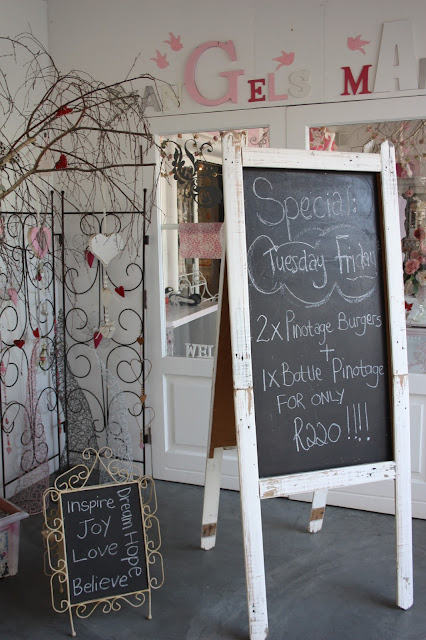 ANGELS MA
Special:
Tuesday Friday
2x Pinotage Burgers
+
1x Bottle Pinotage
FOR ONLY
R220 !!!!
WEL
Inspire
JOY
Love
Believe
Dream Hope